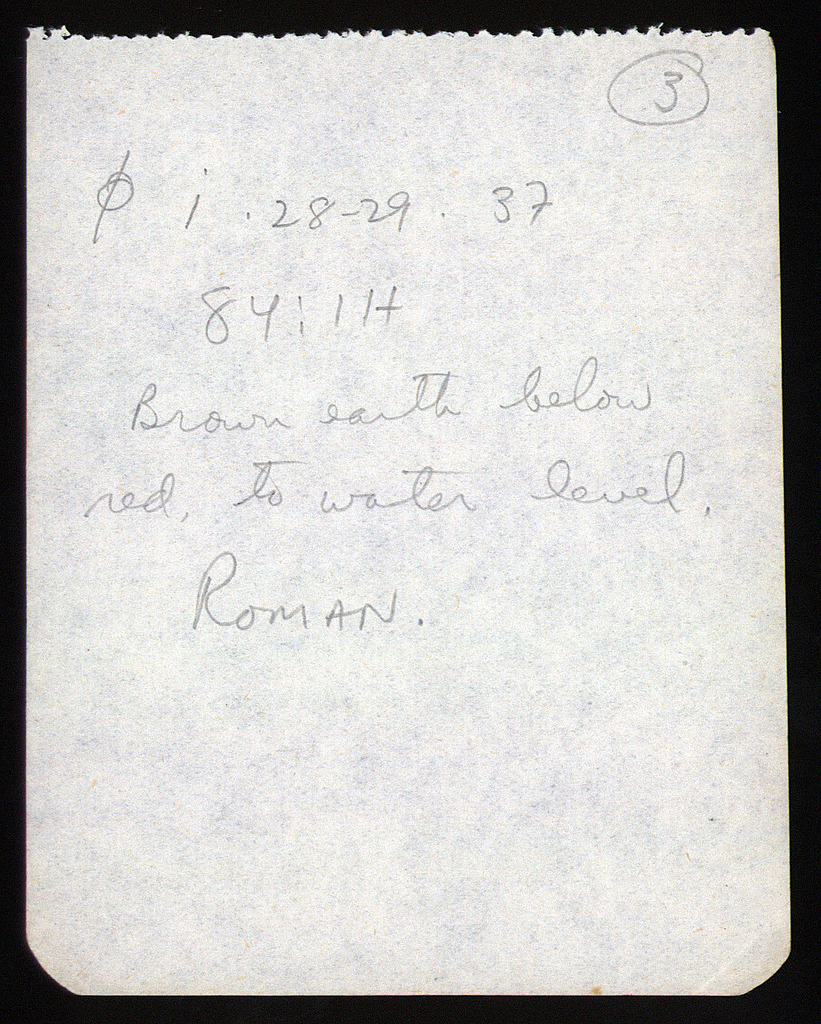 3
φ i . 28-29 . 37
84:1H
Brown earth below
red, to water level.
ROMAN.